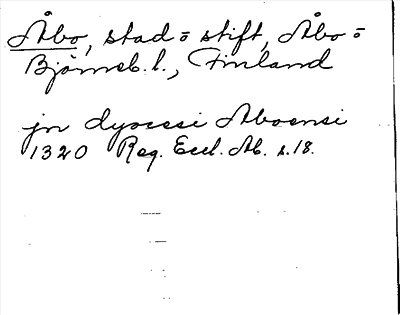 Åbo, stad o stift, Åbo o
Björneb. l., Finland
jn dyocesi Aboensi
1320 Reg. Eccl. Ab. s. 18.